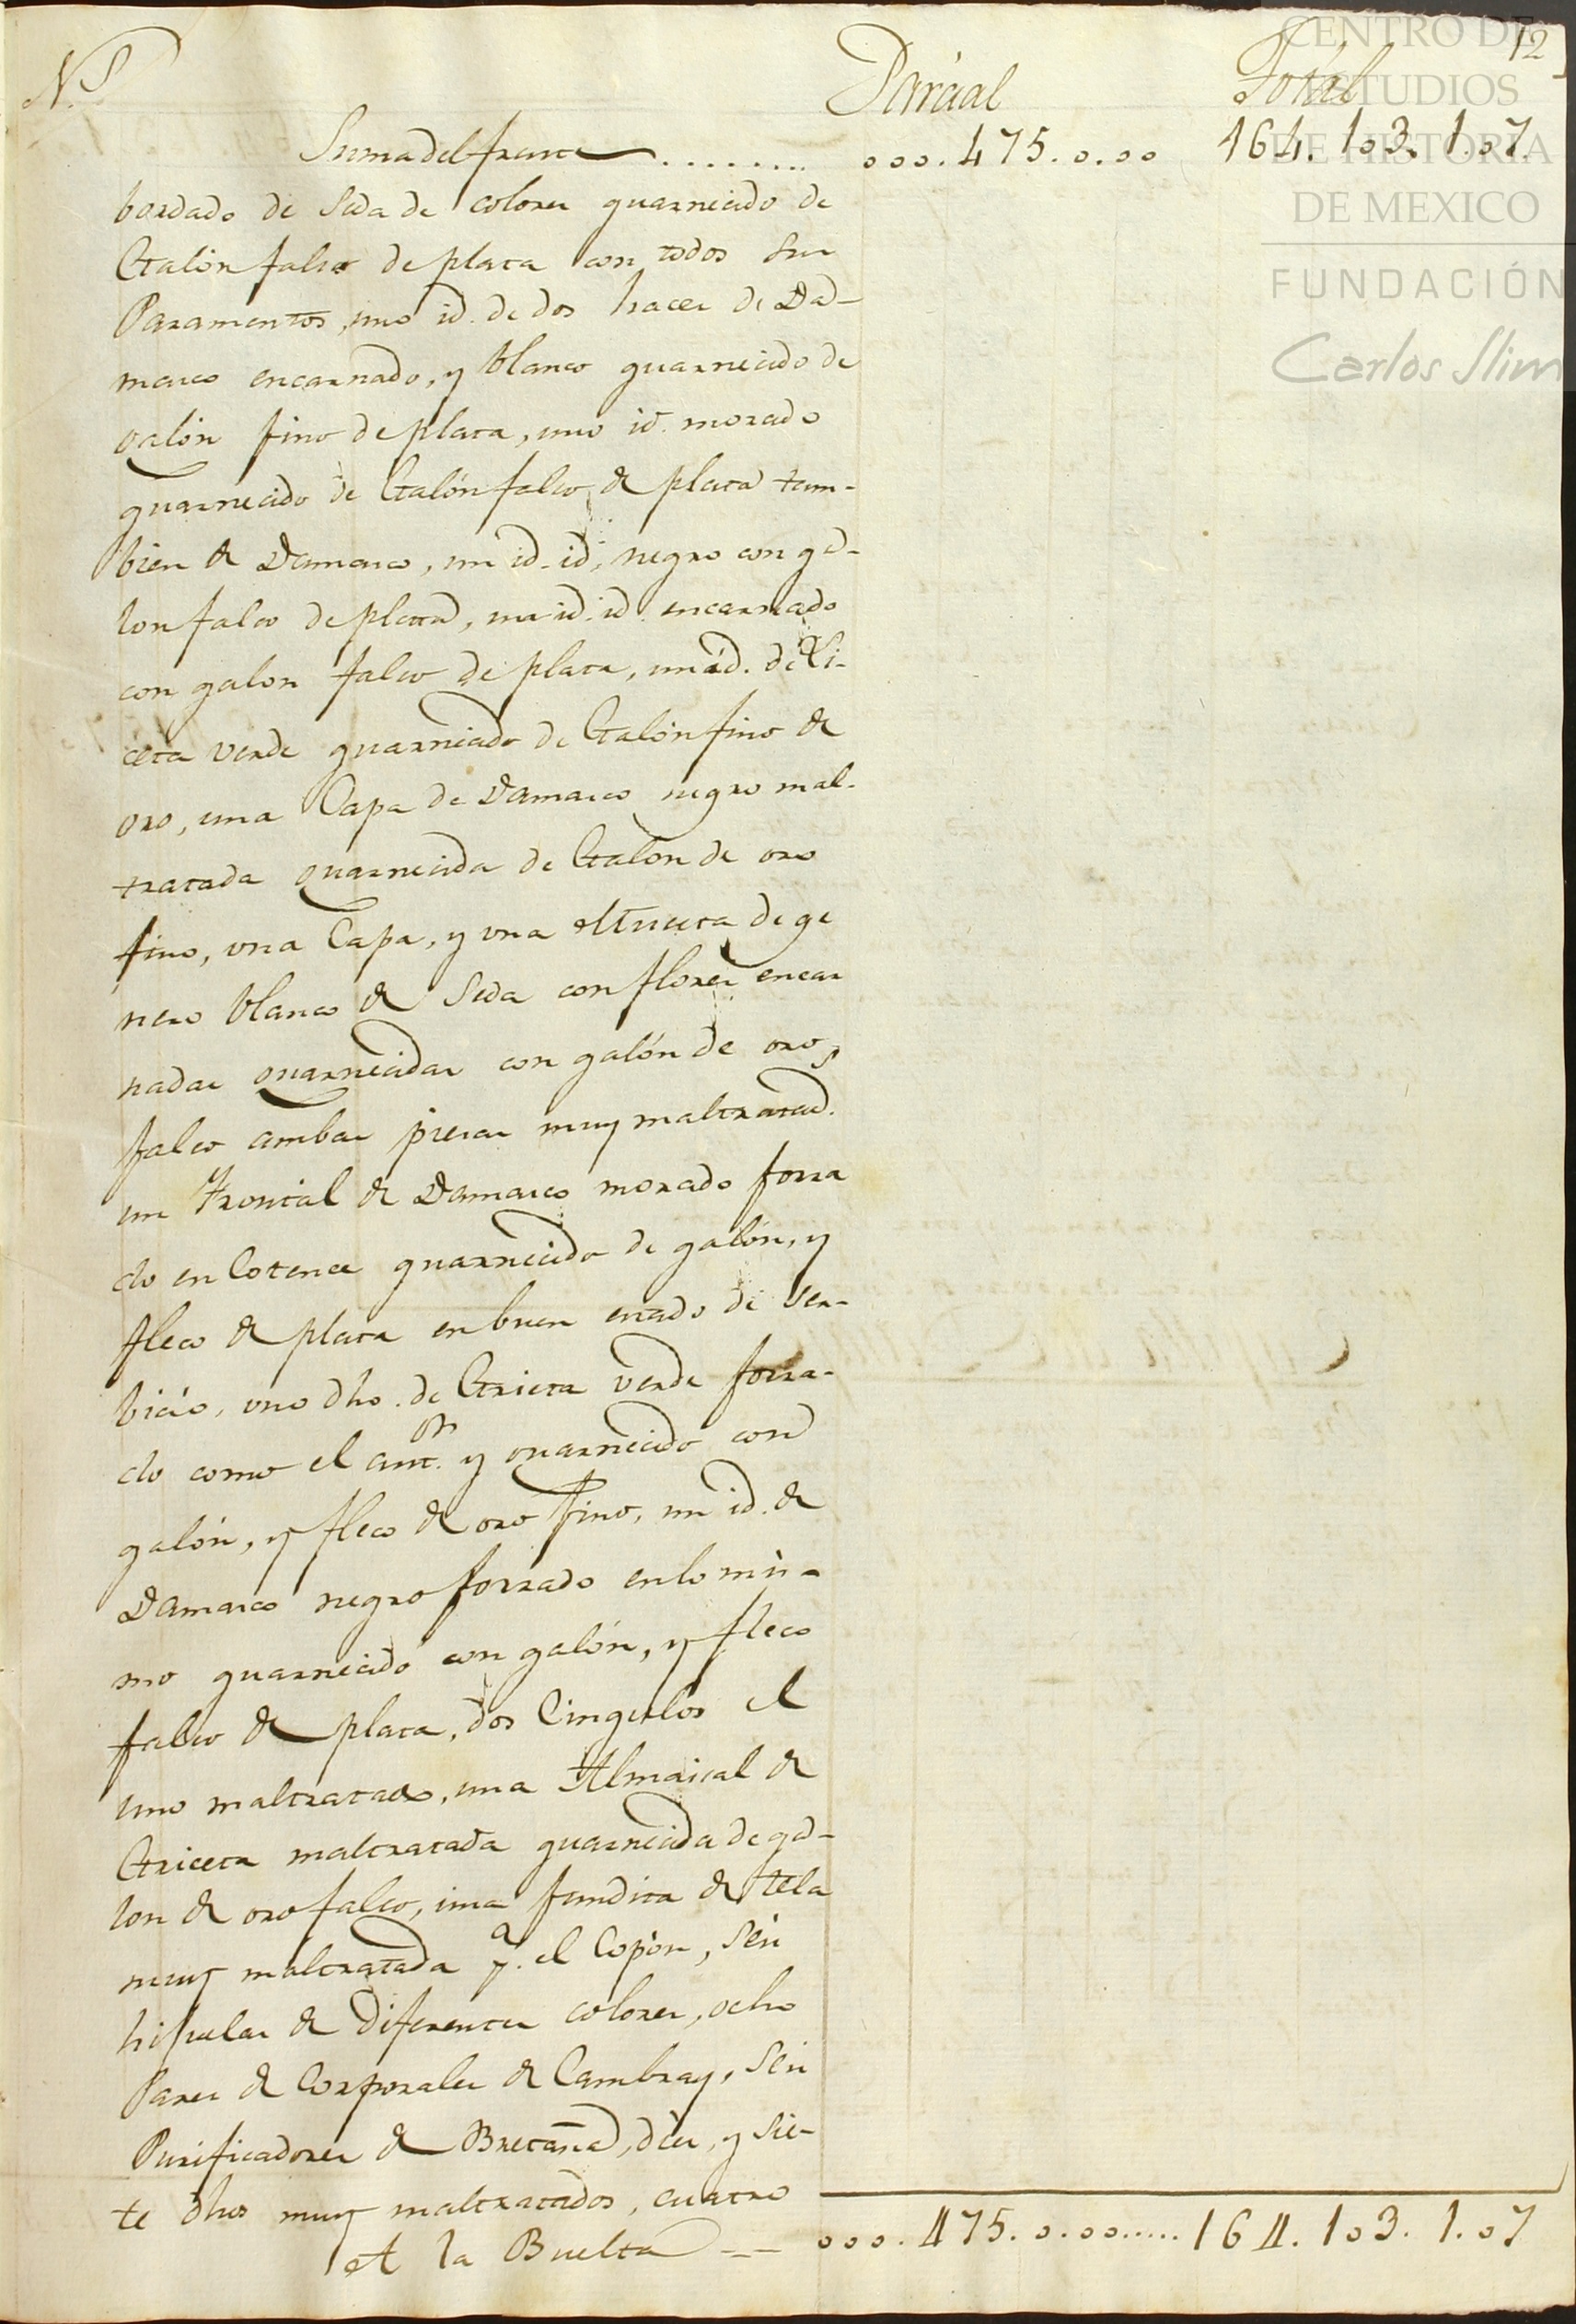 N.P Parcial Total 12
Suma del frente ......... 000.475.0.00 164.103.1.07
bordado de Seda de colores guarnecido de
Galón falso de plata con todos sus
Paramentos, uno id. de dos haces de Da-
masco encarnado, y blanco guarnecido de
galón fino de plata, uno id. morado
guarnecido de Galón falso de plata tam-
bien de Damasco, un id. id. negro con ga-
lon falso de plata, un id. id. encarnado
con galon falso de plata, un id. de
ceta verde guarnecido de Galón fino de
oro, una Capa de Damasco negro mal-
tratada guarnecida de Galon de oro
fino, una Capa, y una Muceta de ge
nero blanco de Seda con flores encar
nadas guarnecidas con galón de oro
falso ambas piesas muy maltratad.
un Frontal de Damasco morado forra
do en Cotence guarnecido de galón, y
fleco de plata en buen estado de ser-
bicio, uno dho. de Griseta verde forra-
do como el antor. y guarnecido con
galón, y fleco de oro fino, un id. de
Damasco negro forrado en lo mis-
mo guarnecido con galón, y fleco
falso de plata, dos Cingulos el
uno maltratado, una Almaisal de
Griceta maltratada guarnecida de ga-
lon de oro falso, una fundita de tela
muy maltratada pa. el Copón, seis
hijuelas de diferentes colores, ocho
Pares de Corporales de Cambray, seis
Purificadores de Bretaña, dies, y sie-
te dhos muy maltratados, cuatro
A la Buelta -- 000.475.0.00......164.103.1.07
CENTRO DE
ESTUDIOS
DE HISTORIA
DE MEXICO
FUNDACIÓN
Carlos Slim